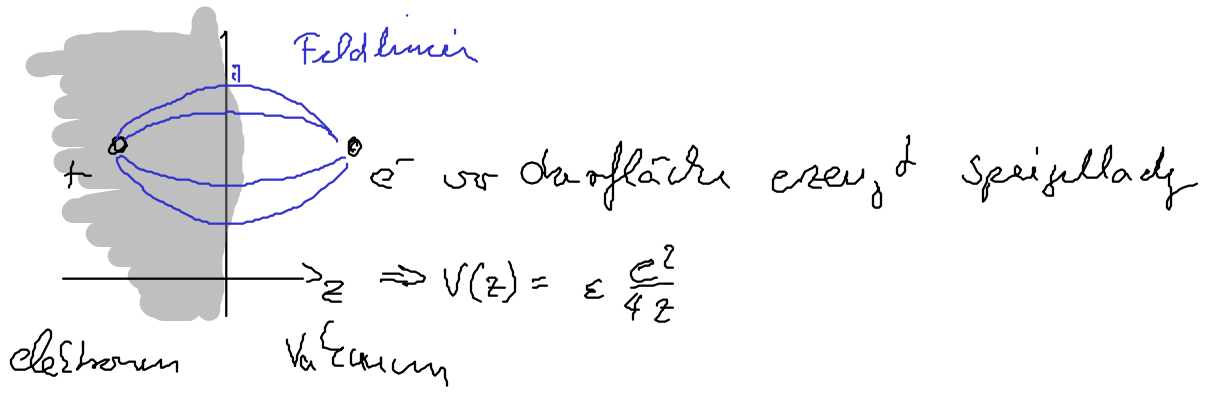 Feldlinien
+ e⁻ vor Oberfläche erzeugt Spiegelladg
z ⇒ V(z) = ε e²/4z
elektronen Vakuum